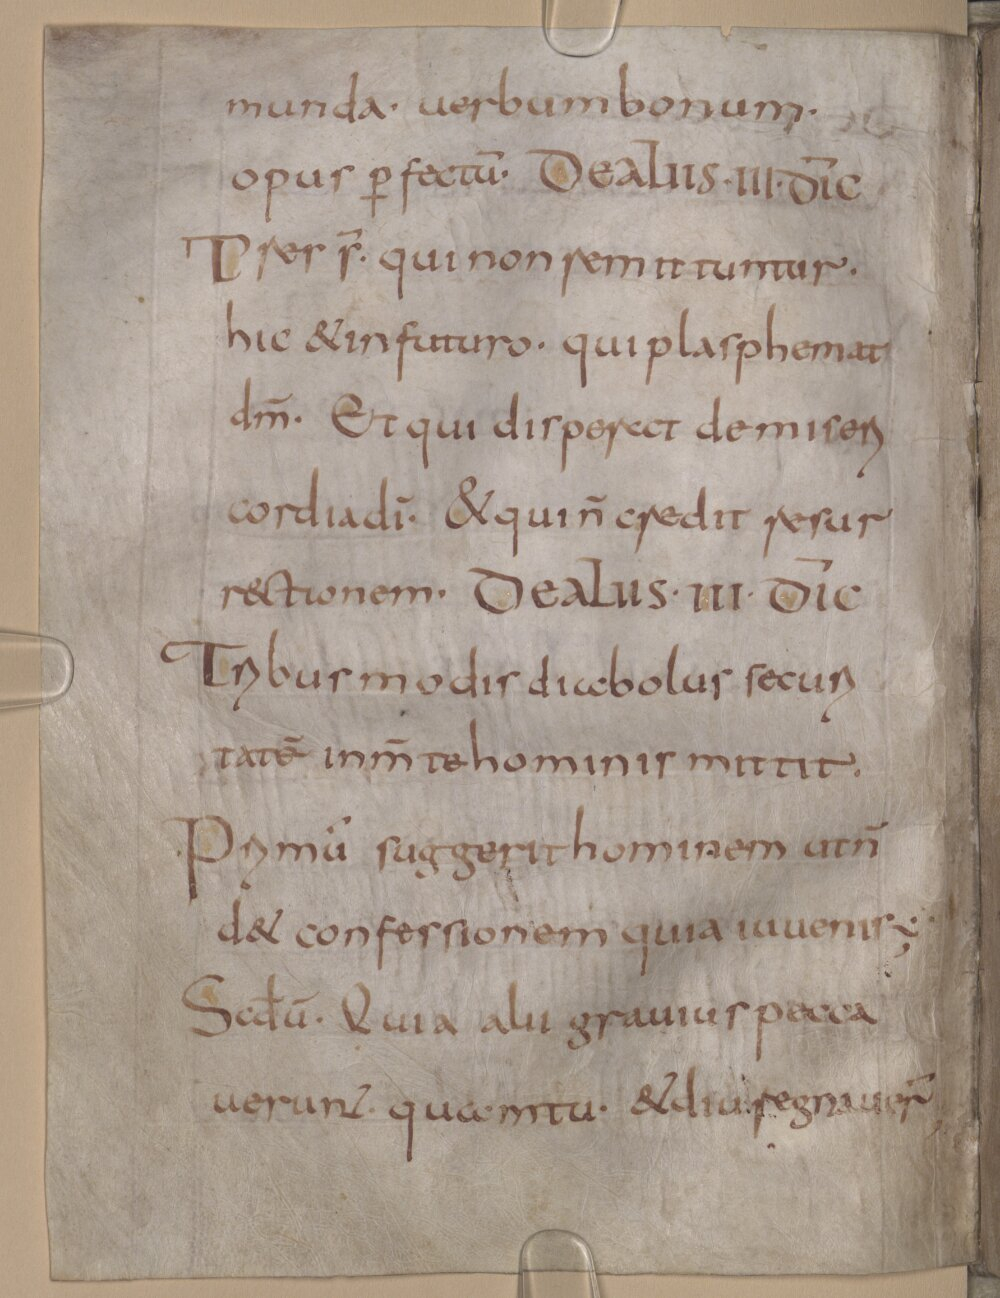 munda· uerbum bonum·
opus ꝑfectū· De alus·iii·dic̄
Tres s̄· qui non remittuntur·
hic & in futuro· qui plasphemat
dm̄· Et qui disperect de miseri
cordia di̅· & qui n̄ credit resur
rectionem· De alus·iii·dic̄
Tribus modis diabolus securi
tatē in m̄te hominis mittit·
Primū suggerit hominem ut n̄
d& confessionem quia iuuenis;
Scdū· Quia alii grauius pecca
uerunt· quam tu· & diu regnauer̄